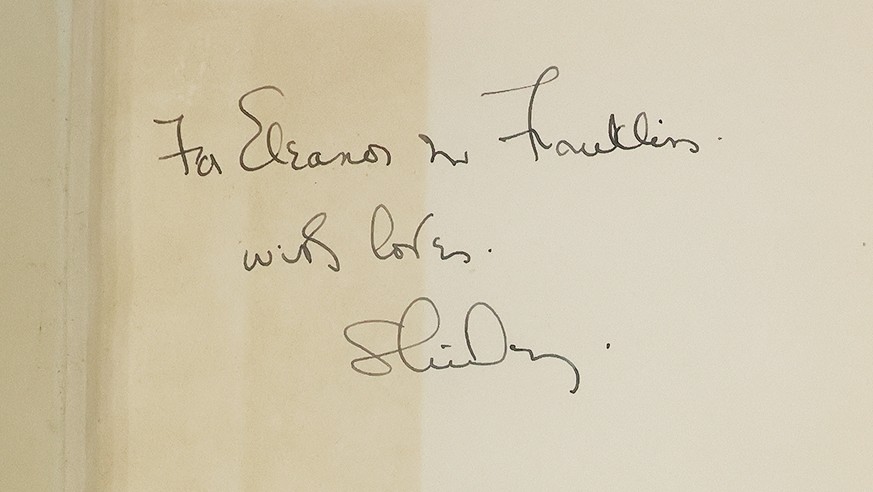 For Eleanor & Franklin.
with love.
Shirley.